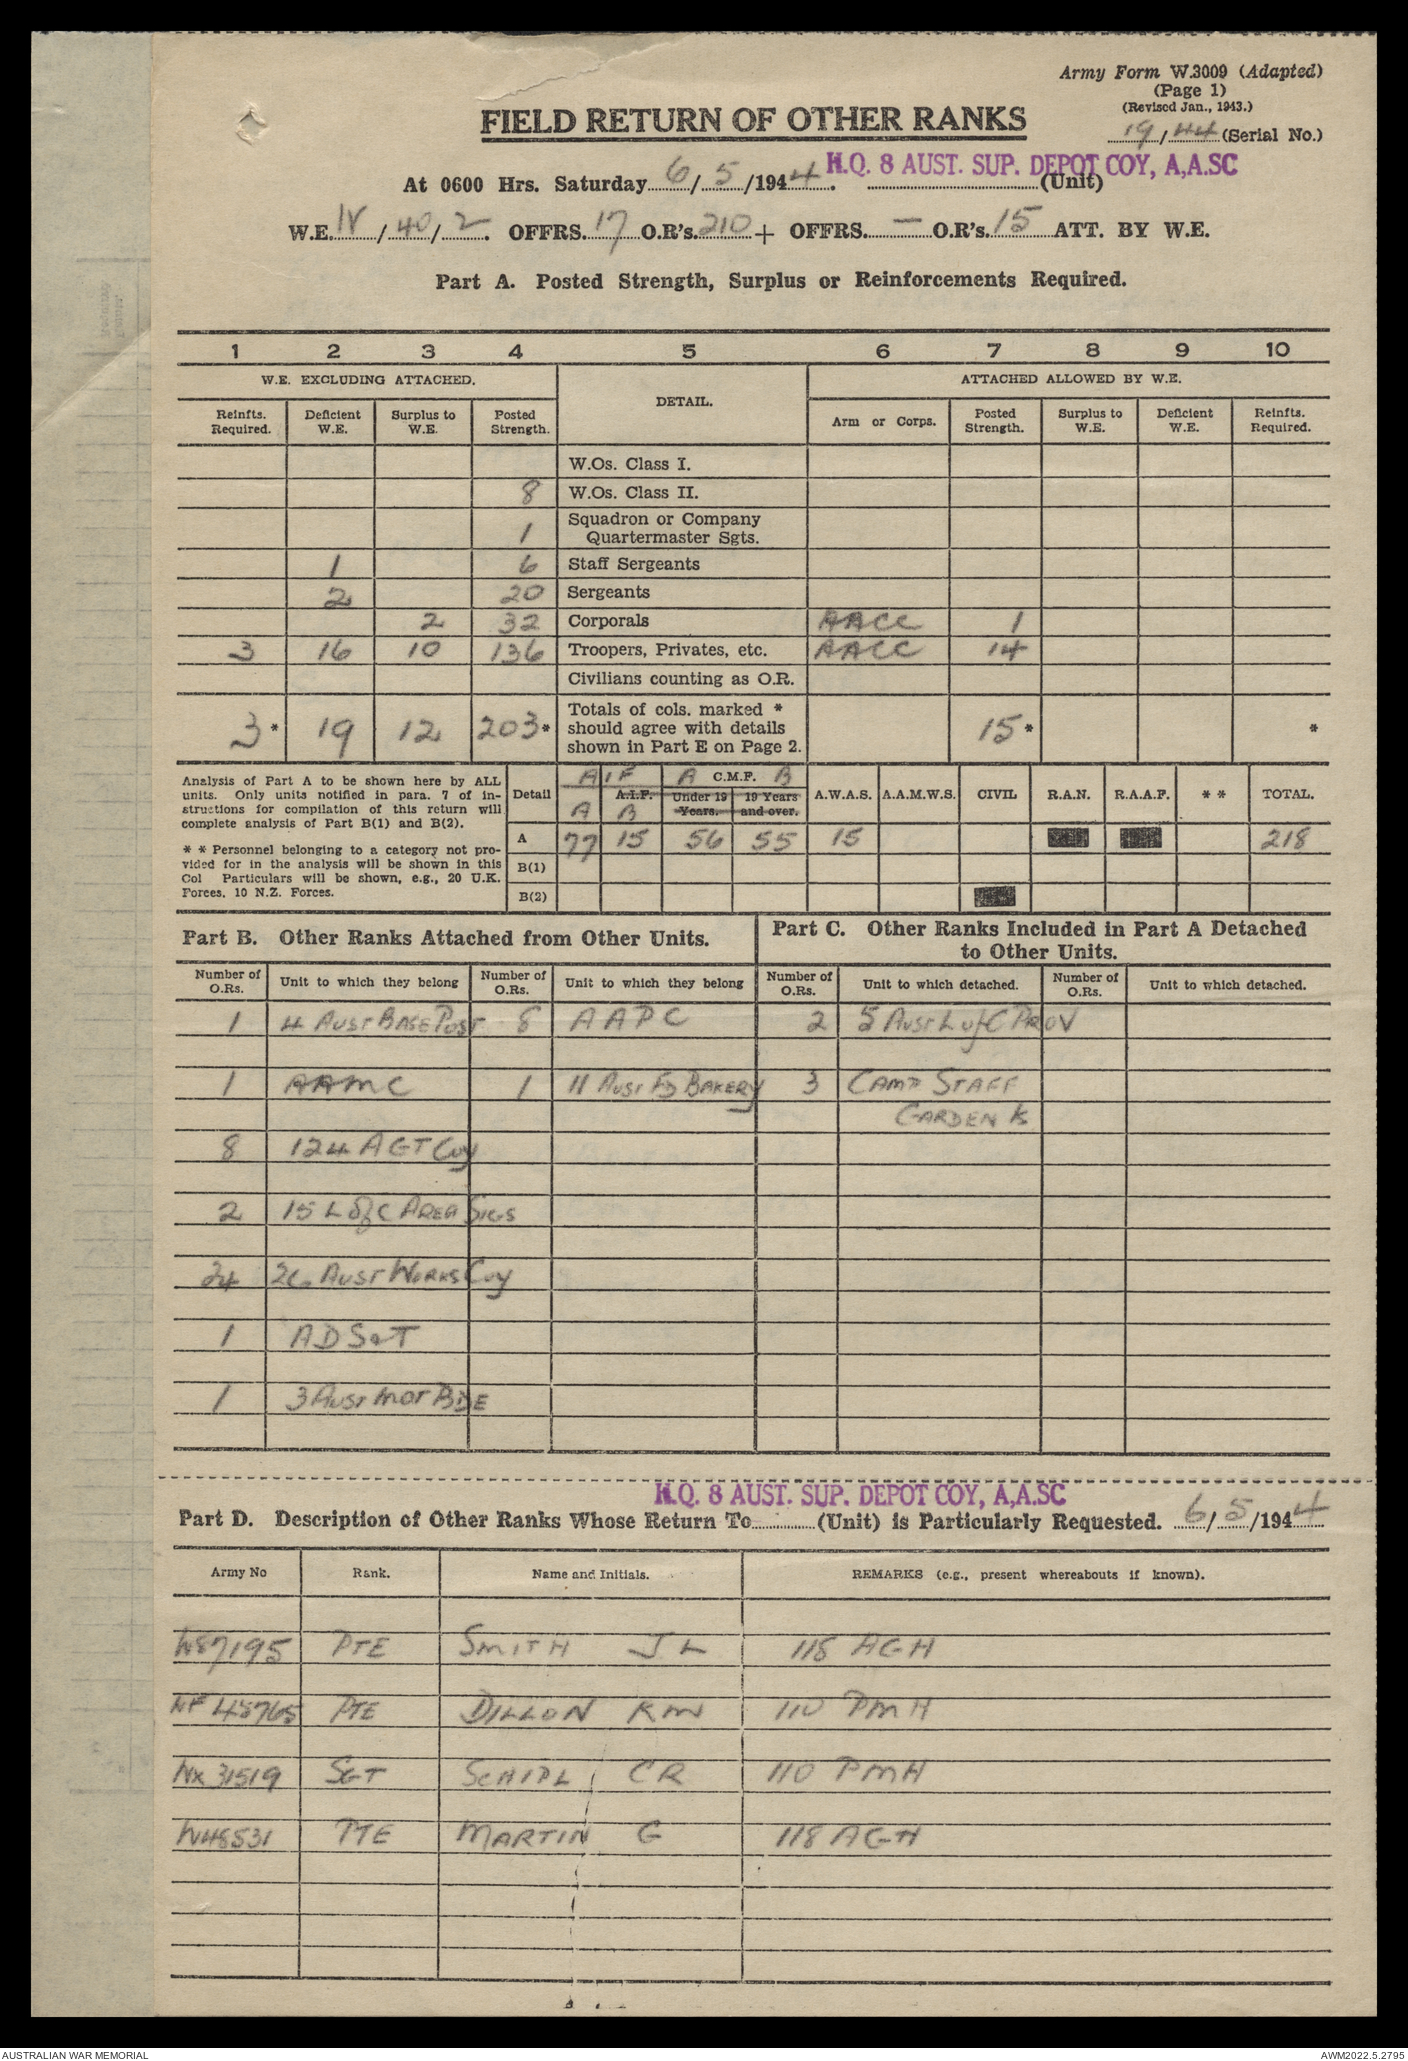 Army Form W.3009 (Adapted)
(Page 1)
(Revised Jan., 1943.)
19/44 (Serial No.)
FIELD RETURN OF OTHER RANKS
H.Q. 8 AUST. SUP. DEPOT COY, A,A.SC
At 0600 Hrs. Saturday 6/5/1944. (Unit)
W.E. IV/40/2. OFFRS. 17 O.R's. 210 + OFFRS. — O.R's. 15 ATT. BY W.E.
Part A. Posted Strength, Surplus or Reinforcements Required.
1 2 3 4 5 6 7 8 9 10
W.E. EXCLUDING ATTACHED. DETAIL. ATTACHED ALLOWED BY W.E.
Reinfts. Required. Deficient W.E. Surplus to W.E. Posted Strength. Arm or Corps. Posted Strength. Surplus to W.E. Deficient W.E. Reinfts. Required.
W.Os. Class I.
8 W.Os. Class II.
1 Squadron or Company Quartermaster Sgts.
1 6 Staff Sergeants
2 20 Sergeants
2 32 Corporals AACC 1
3 16 10 136 Troopers, Privates, etc. AACC 14
Civilians counting as O.R.
3* 19 12 203* Totals of cols. marked * should agree with details shown in Part E on Page 2. 15* *
Analysis of Part A to be shown here by ALL
units. Only units notified in para. 7 of in-
structions for compilation of this return will
complete analysis of Part B(1) and B(2).
* * Personnel belonging to a category not pro-
vided for in the analysis will be shown in this
Col Particulars will be shown, e.g., 20 U.K.
Forces, 10 N.Z. Forces.
AIF A C.M.F. B
Detail A.I.F. Under 19 Years. 19 Years and over. A.W.A.S. A.A.M.W.S. CIVIL R.A.N. R.A.A.F. * * TOTAL.
A B
A 77 15 56 55 15 218
B(1)
B(2)
Part B. Other Ranks Attached from Other Units.
Part C. Other Ranks Included in Part A Detached
to Other Units.
Number of O.Rs. Unit to which they belong Number of O.Rs. Unit to which they belong Number of O.Rs. Unit to which detached. Number of O.Rs. Unit to which detached.
1 4 Aust Base Post 8 AAPC 2 5 Aust L of C PROV
1 AAMC 1 11 Aust Fd BAKERY 3 CAMP STAFF
GARDEN
8 124 AGT Coy
2 15 L of C AREA SIGS
24 26 AUST WORKS Coy
1 ADS&T
1 3 Aust Mot BDE
H.Q. 8 AUST. SUP. DEPOT COY, A,A.SC
Part D. Description of Other Ranks Whose Return To (Unit) is Particularly Requested. 6/5/1944
Army No Rank. Name and Initials. REMARKS (e.g., present whereabouts if known).
PTE SMITH J L 118 AGH
NF 48765 PTE DILLON KM 110 PMH
NX 31519 SGT CR 110 PMH
PTE MARTIN G 118 AGH
AUSTRALIAN WAR MEMORIAL
AWM2022.5.2795